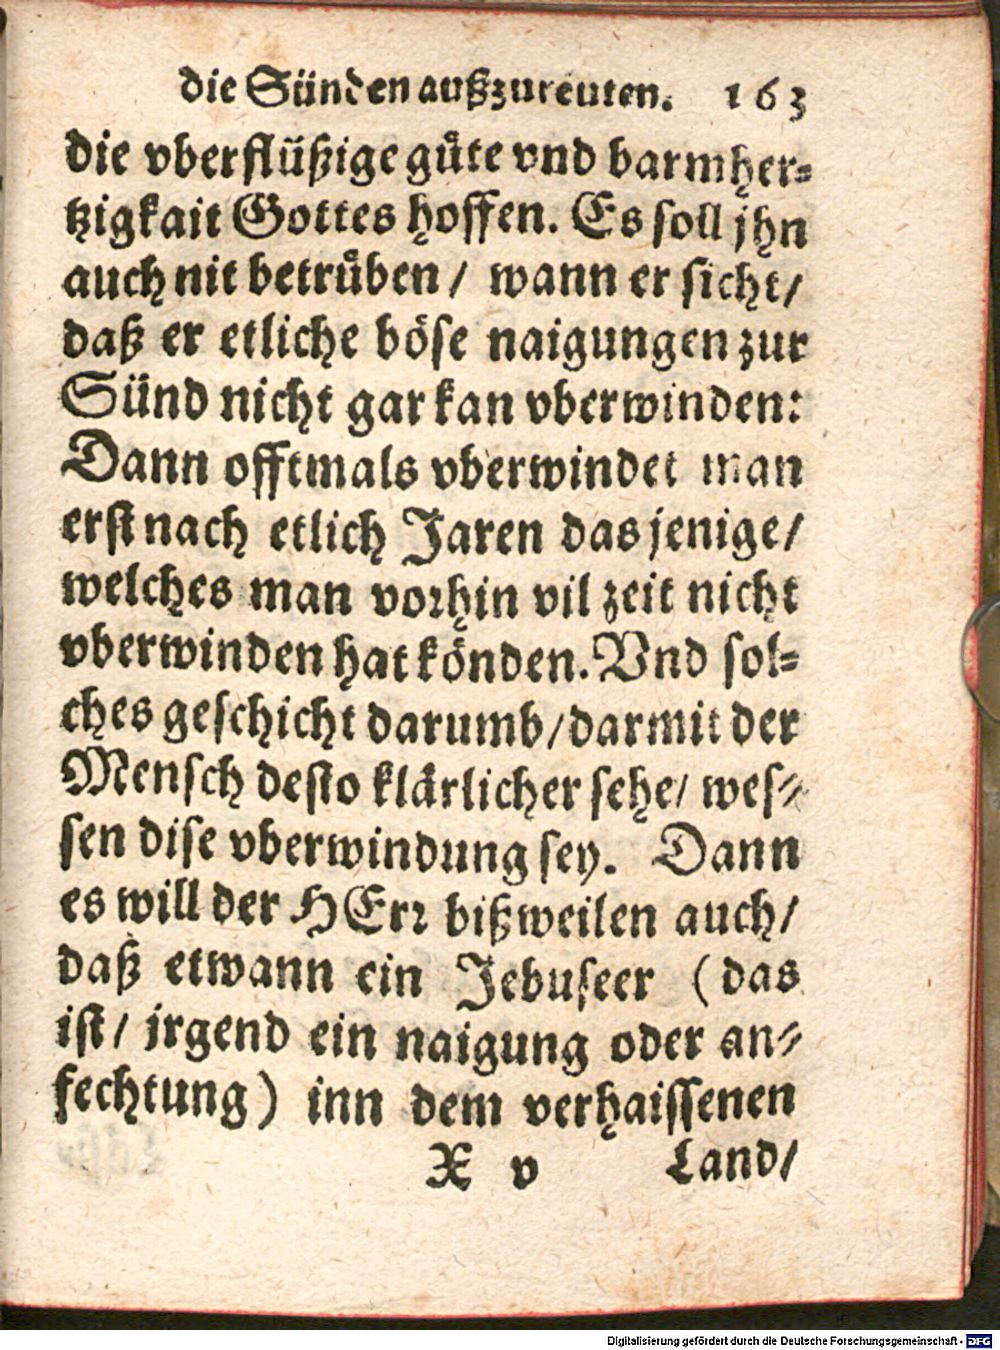 die Sünden außzureuten. 163
die vberflüßige guͤte vnd barmher⸗
tzigkait Gottes hoffen. Es soll jhn
auch nit betruͤben / wann er sicht /
daß er etliche böse naigungen zur
Sünd nicht gar kan vberwinden:
Dann offtmals vberwindet man
erst nach etlich Jaren das jenige /
welches man vorhin vil zeit nicht
vberwinden hat könden. Vnd sol⸗
ches geschicht darumb / darmit der
Mensch desto klaͤrlicher sehe / wes⸗
sen dise vberwindung sey. Dann
es will der HErr bißweilen auch /
daß etwann ein Jebuseer (das
ist / jrgend ein naigung oder an⸗
fechtung) inn dem verhaissenen
X v Land /
Digitalisierung gefördert durch die Deutsche Forschungsgemeinschaft - DFG